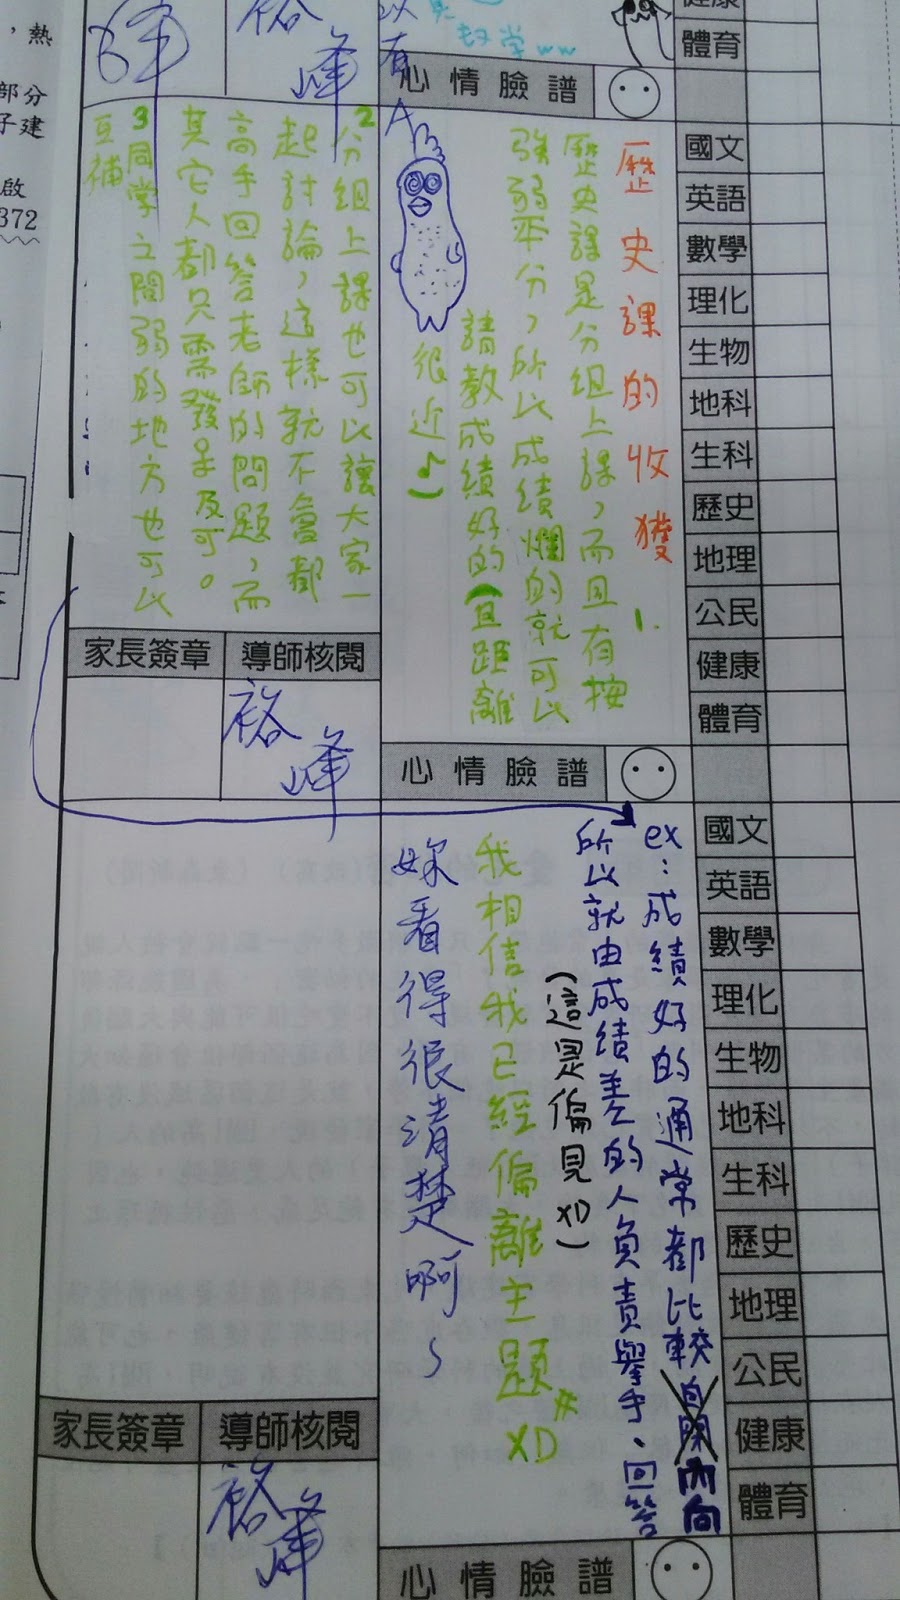 ，熱
部分
子建
啟
372
以有A
奻学ww
裕峰
健康
體育
心情臉譜
國文
英語
數學
理化
生物
地科
生科
歷史
地理
公民
健康
體育
歷史課的收獲
1.
歷史課是分組上課，而且有按
強弱平分，所以成績爛的就可以
請教成績好的(且距離
很近♪)
2分組上課也可以讓大家一
起討論，這樣就不會都
高手回答老師的問題，而
其它人都只需發呆及可。
3同學之間弱的地方也可以
互補
家長簽章
導師核閱
裕峰
心情臉譜
國文
英語
數學
理化
生物
地科
生科
歷史
地理
公民
健康
體育
ex:成績好的通常都比較自閉內向
所以就由成績差的人負責舉手、回答
(這是偏見XD)
我相信我已經偏離主題#XD
妳看得很清楚啊~
家長簽章
導師核閱
裕峰
心情臉譜